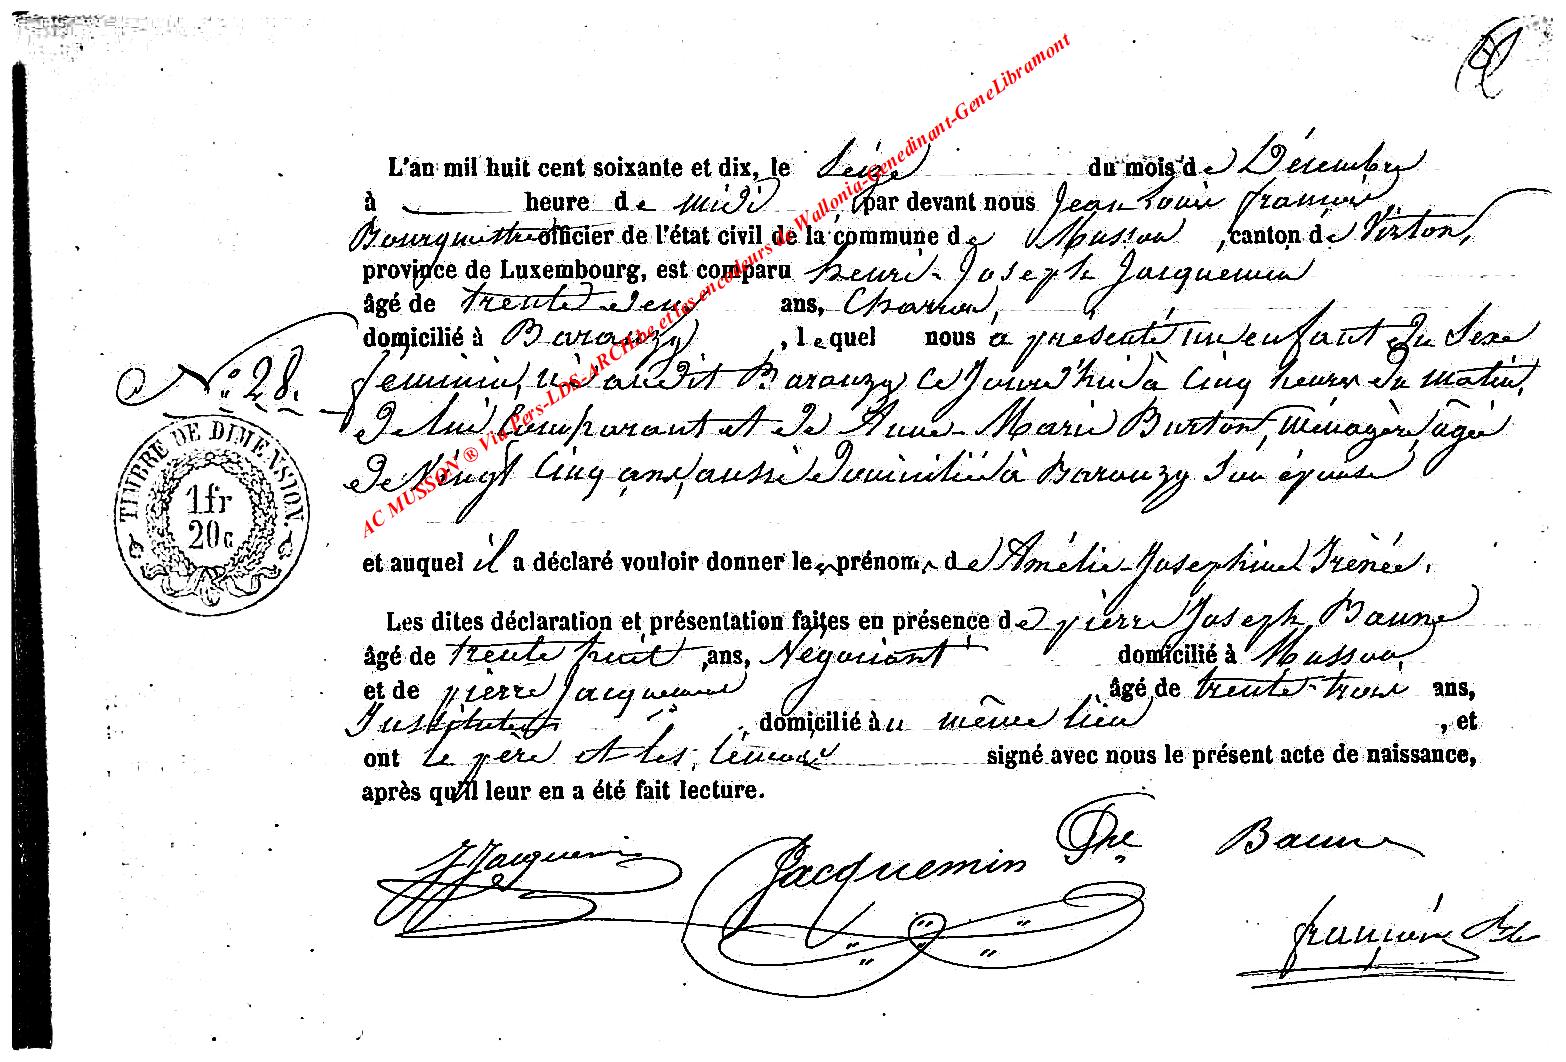 L'an mil huit cent soixante et dix, le Seize du mois de Décembre
à heure de midi, par devant nous Jean Louis François
Bourgmestre officier de l'état civil de la commune de Musson, canton de Virton,
province de Luxembourg, est comparu henri-Joseph Jacquemin
âgé de trente deux ans, Charron,
domicilié à Baranzy, lequel nous a présenté un enfant du Sexe
N° 28.
feminin, né audit Baranzy ce Jourd'hui à cinq heures du matin,
de lui Comparant et de Anne-Marie Burton, ménagère, âgée
de Vingt Cinq ans, aussi domiciliée à Baranzy Son épouse
TIMBRE DE DIMENSION.
1fr
20c
et auquel il a déclaré vouloir donner les prénoms de Amélie Josephine Irénée.
Les dites déclaration et présentation faites en présence de pierre Joseph Baune
âgé de trente huit ans, Négociant domicilié à Musson,
et de pierre Jacquemin âgé de trente-trois ans,
Instituteur, domicilié au même lieu, et
ont le père et les témoins signé avec nous le présent acte de naissance,
après qu'il leur en a été fait lecture.
Jacquemin Jacquemin Phe Baune
françois
AC MUSSON ® Via Pers-LDS-ARCH.be et les encodeurs de Wallonia-Genedinant-GeneLibramont